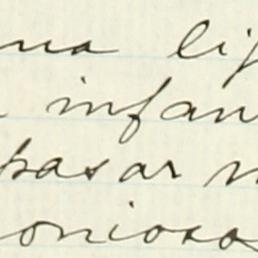 una lig
infan
pasar n
onioso